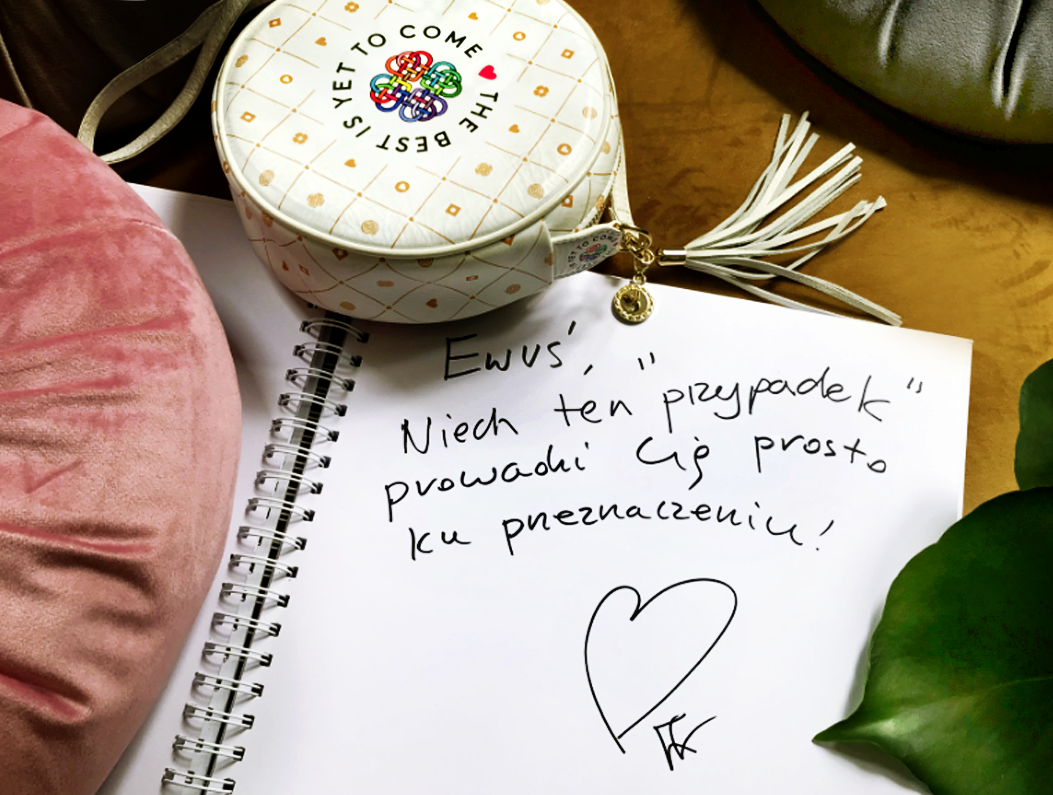 THE BEST IS YET TO COME
IS YET TO CO
Ewuś,
Niech ten "przypadek"
prowadzi Cię prosto
ku przeznaczeniu!